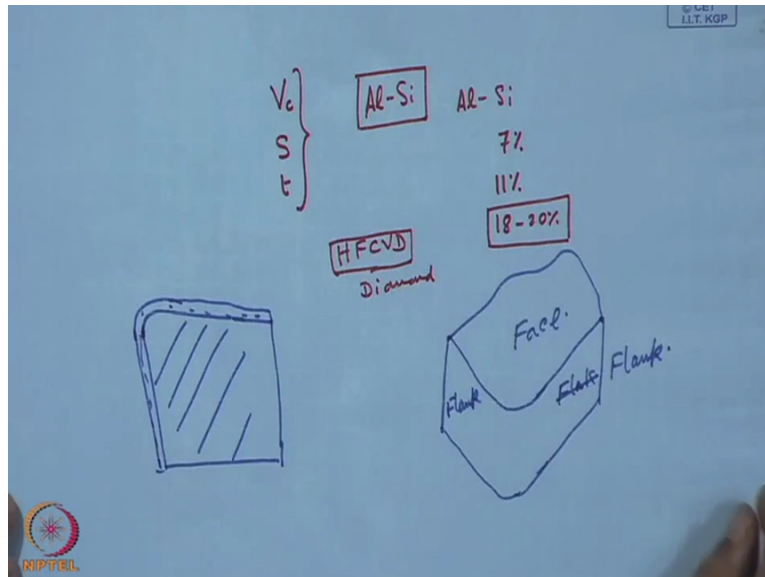 © CET
I.I.T. KGP
Vc
S
t
Al-Si
Al-Si
7%
11%
18-20%
HFCVD
Diamond
Face.
Flank
Flank.
NPTEL